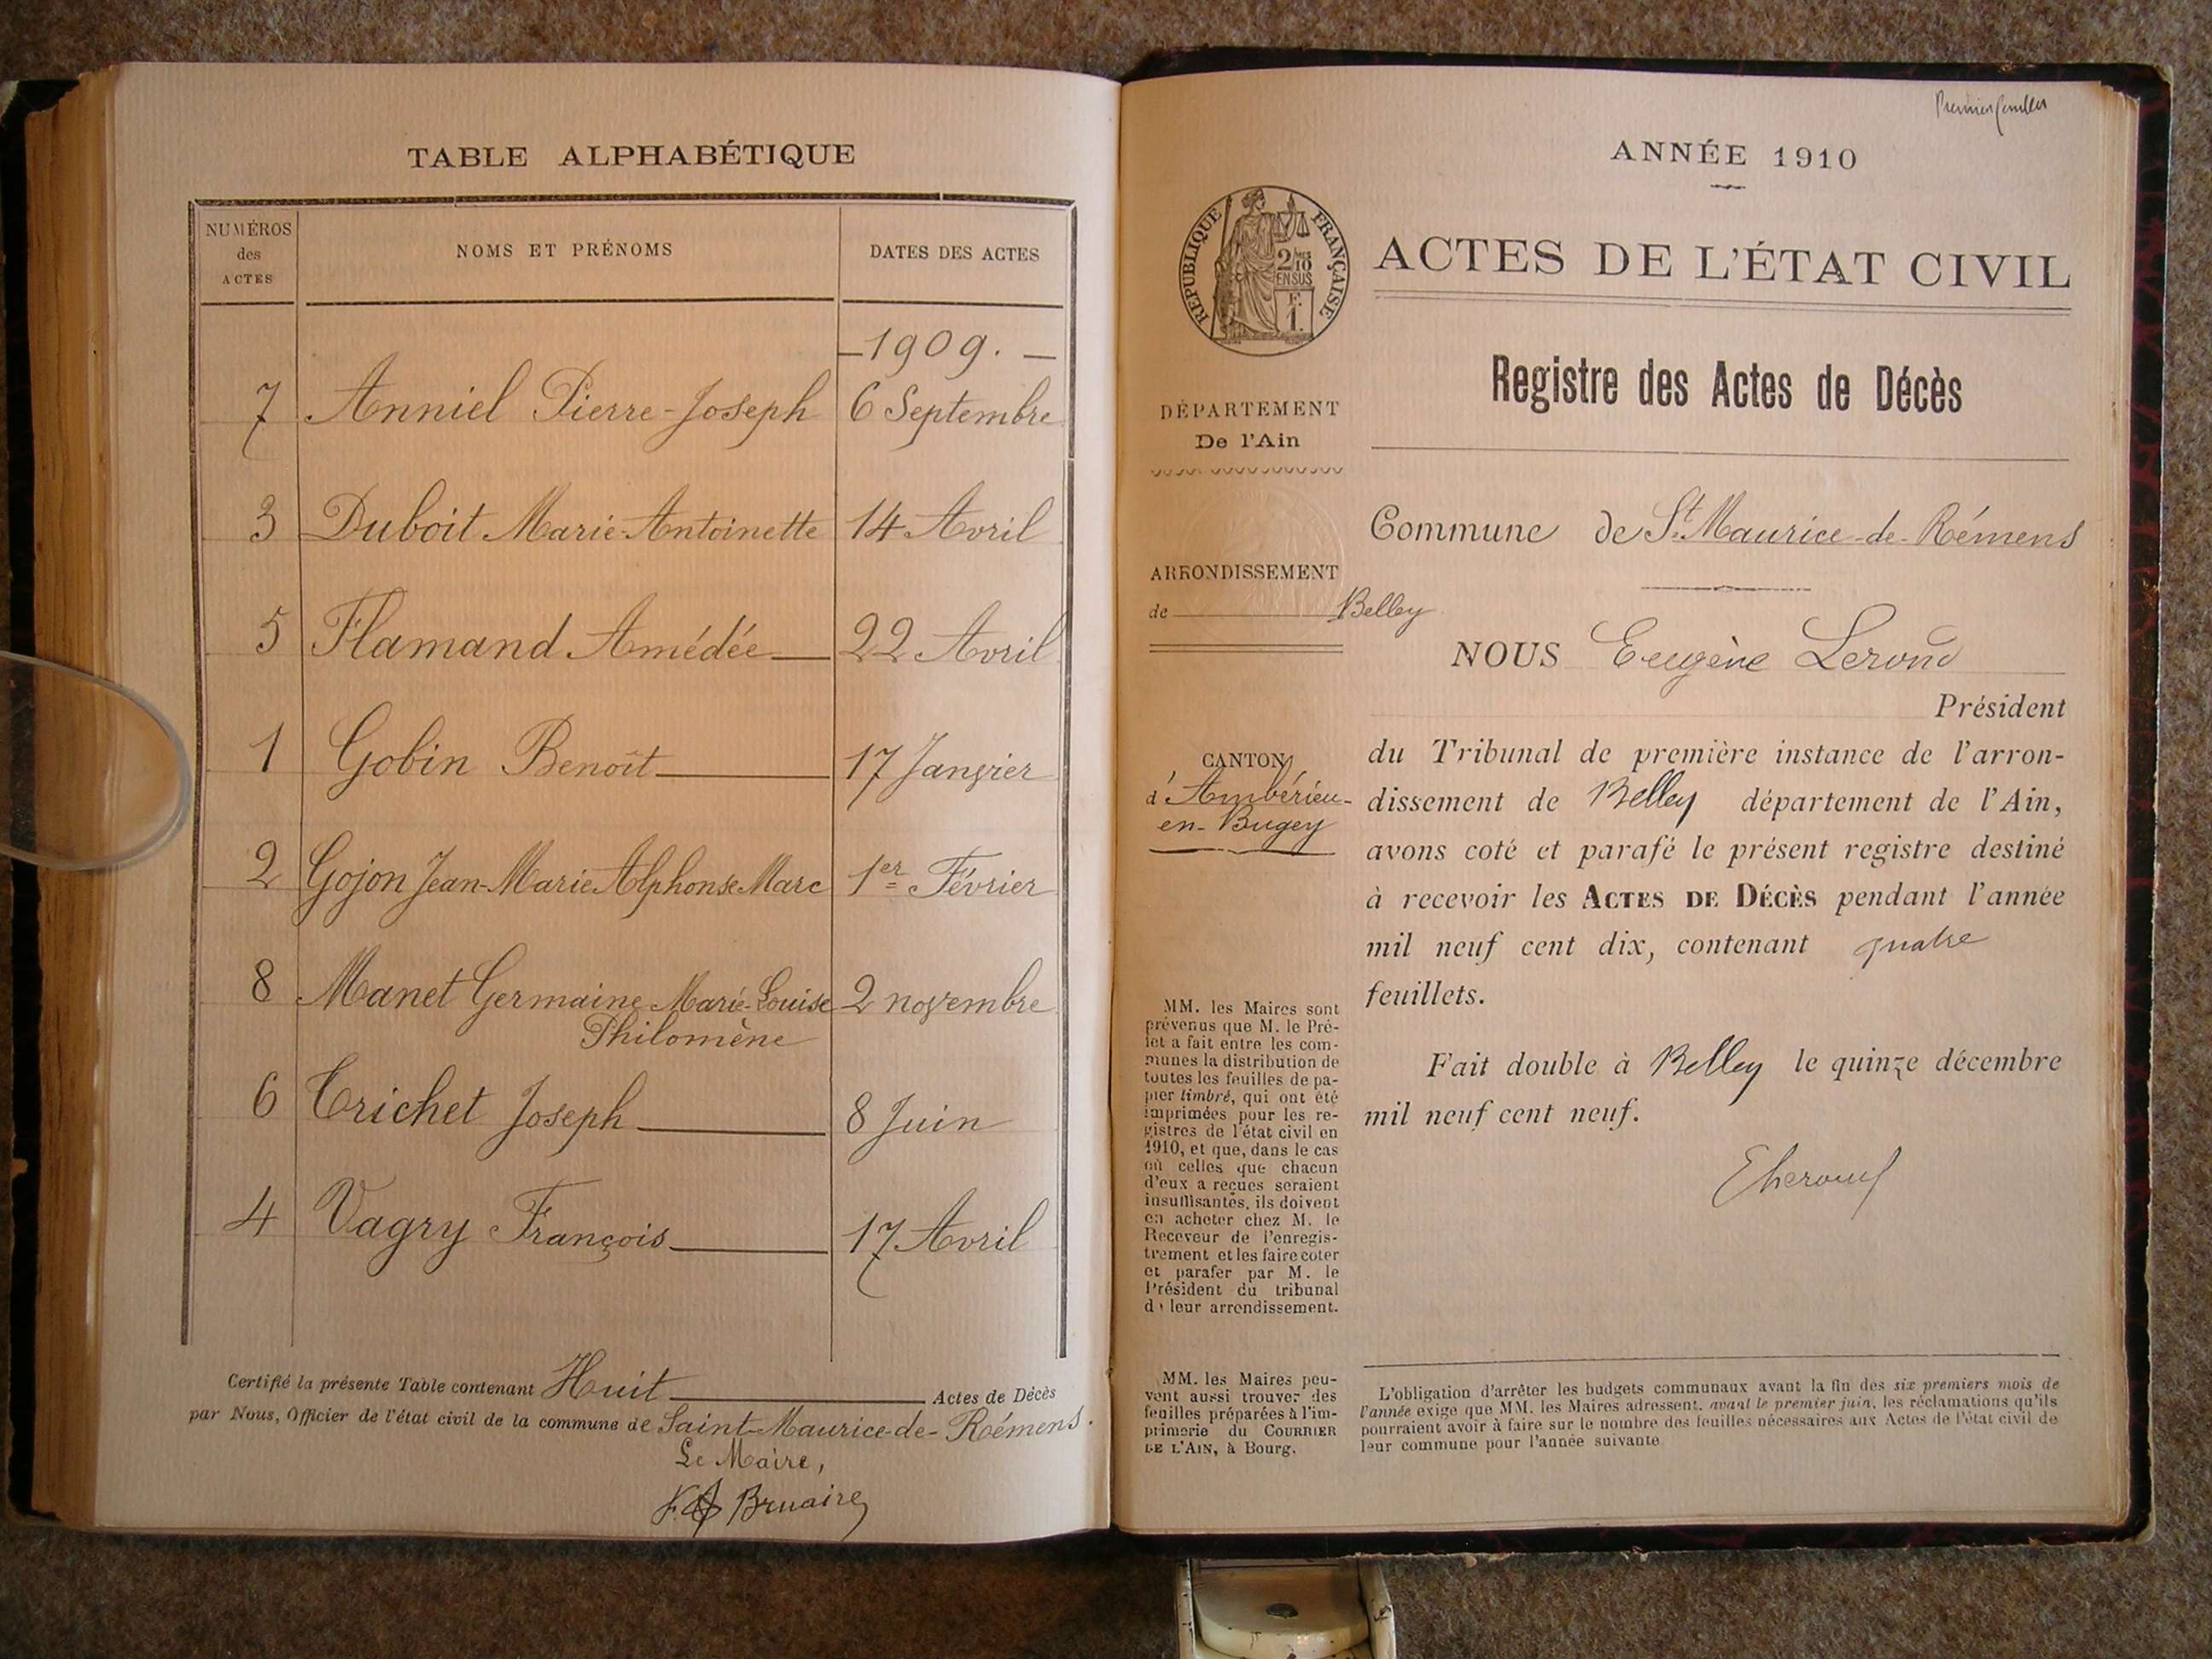 TABLE ALPHABÉTIQUE
NUMÉROS des ACTES
NOMS ET PRÉNOMS
DATES DES ACTES
—1909.—
7 Anniel Pierre-Joseph 6 Septembre
3 Duboit Marie-Antoinette 14 Avril
5 Flamand Amédée 22 Avril
1 Gobin Benoît 17 Janvier
2 Gojon Jean-Marie Alphonse Marc 1er Février
8 Manet Germaine Marie-Louise 2 novembre
Philomène
6 Trichet Joseph 8 Juin
4 Vagry François 17 Avril
Certifié la présente Table contenant Huit Actes de Décès
par Nous, Officier de l'état civil de la commune de Saint-Maurice-de-Rémens.
Le Maire,
Bruaire
Premier feuillet
ANNÉE 1910
RÉPUBLIQUE FRANÇAISE
2/10
EN SUS
F.
1.
ACTES DE L'ÉTAT CIVIL
Registre des Actes de Décès
DÉPARTEMENT
De l'Ain
Commune de St Maurice-de-Rémens
ARRONDISSEMENT
de Belley
NOUS Eugène Lerond
Président
CANTON
d'Ambérieu-
en-Bugey
du Tribunal de première instance de l'arron-
dissement de Belley département de l'Ain,
avons coté et parafé le présent registre destiné
à recevoir les ACTES DE DÉCÈS pendant l'année
mil neuf cent dix, contenant quatre
feuillets.
Fait double à Belley le quinze décembre
mil neuf cent neuf.
MM. les Maires sont
prévenus que M. le Pré-
fet a fait entre les com-
munes la distribution de
toutes les feuilles de pa-
pier timbré, qui ont été
imprimées pour les re-
gistres de l'état civil en
1910, et que, dans le cas
où celles que chacun
d'eux a reçues seraient
insuffisantes, ils doivent
en acheter chez M. le
Receveur de l'enregis-
trement et les faire coter
et parafer par M. le
Président du tribunal
de leur arrondissement.
MM. les Maires peu-
vent aussi trouver des
feuilles préparées à l'im-
primerie du COURRIER
DE L'AIN, à Bourg.
L'obligation d'arrêter les budgets communaux avant la fin des six premiers mois de
l'année exige que MM. les Maires adressent, avant le premier juin, les réclamations qu'ils
pourraient avoir à faire sur le nombre des feuilles nécessaires aux Actes de l'état civil de
leur commune pour l'année suivante